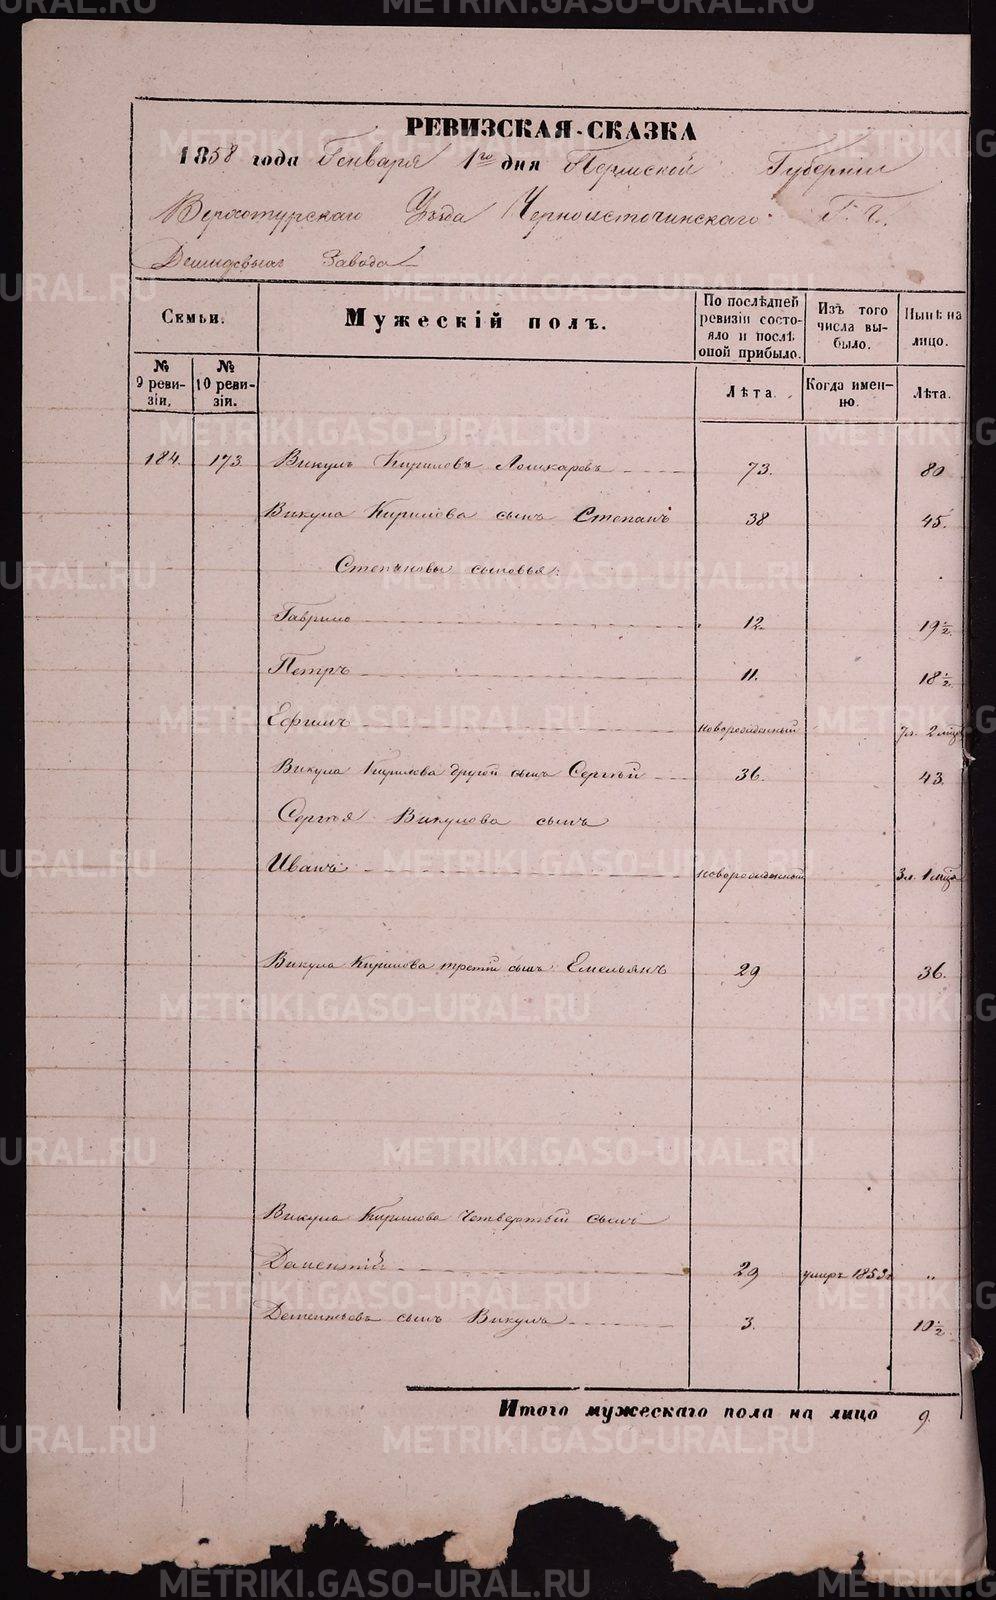 РЕВИЗСКАЯ-СКАЗКА
1858 года Генваря 1го дня Пермской Губернии
Верхотурскаго Уѣзда Черноисточинскаго Г. Г.
Демидовыхъ Завода
Семьи.
Мужескій полъ.
По послѣдней ревизіи состояло и послѣ оной прибыло.
Изъ того числа выбыло.
Нынѣ на лицо.
№ 9 ревизіи.
№ 10 ревизіи.
Лѣта.
Когда именно.
Лѣта.
184. 173 Викулъ Кириловъ Лошкаревъ 73. 80
Викула Кирилова сынъ Степанъ 38 45.
Степановы сыновья:
Гаврило 12. 19½.
Петръ 11. 18½.
Ефимъ новорожденный 7л. 2 мѣс
Викула Кирилова другой сынъ Сергѣй 36. 43.
Сергѣя Викулова сынъ
Иванъ новорожденный 3л. 1 мѣс
Викула Кирилова третій сынъ Емельянъ 29 36.
Викула Кирилова Четвертый сынъ
Даментій 29 умеръ 1853г „
Дементьевъ сынъ Викулъ 3. 10½.
Итого мужескаго пола на лицо 9.
METRIKI.GASO-URAL.RU